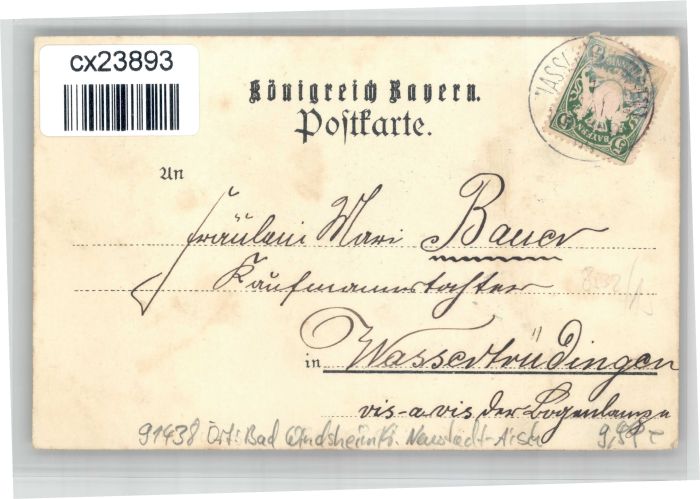 cx23893
Königreich Bayern.
Postkarte.
WASS
BAYERN
5 5
An
Fräulein Mari Bauer
Kaufmannstochter
in Wassertrüdingen
vis-a-vis der Bogenlampe
91438 Ort: Bad Windsheim Kr. Neustadt-Aisch